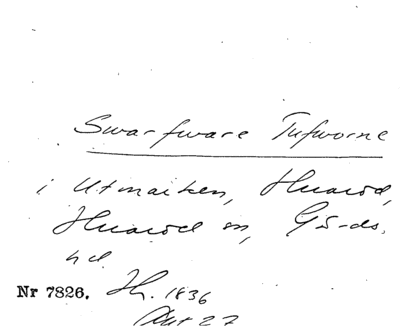 Swarfware Tufworne
i Utmarken, Huarod,
Huarod sn, Gärds
hd
Nr 7826. Hr. 1836
Akt 27